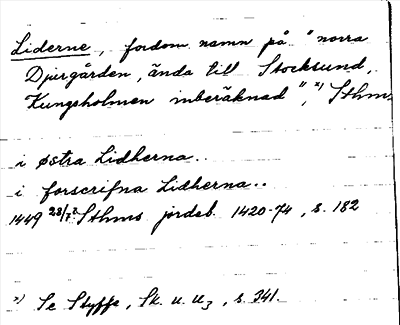 Liderne, fordom namn på "norra
Djurgården, ända till Stocksund,
Kungsholmen inberäknad", ²) Sthms
i østra Lidherna..
i forscrifna Lidherna..
1449 28/7 Sthms jordeb. 1420-74, s. 182
²) Se Styffe, Sk. u. U3, s. 341.